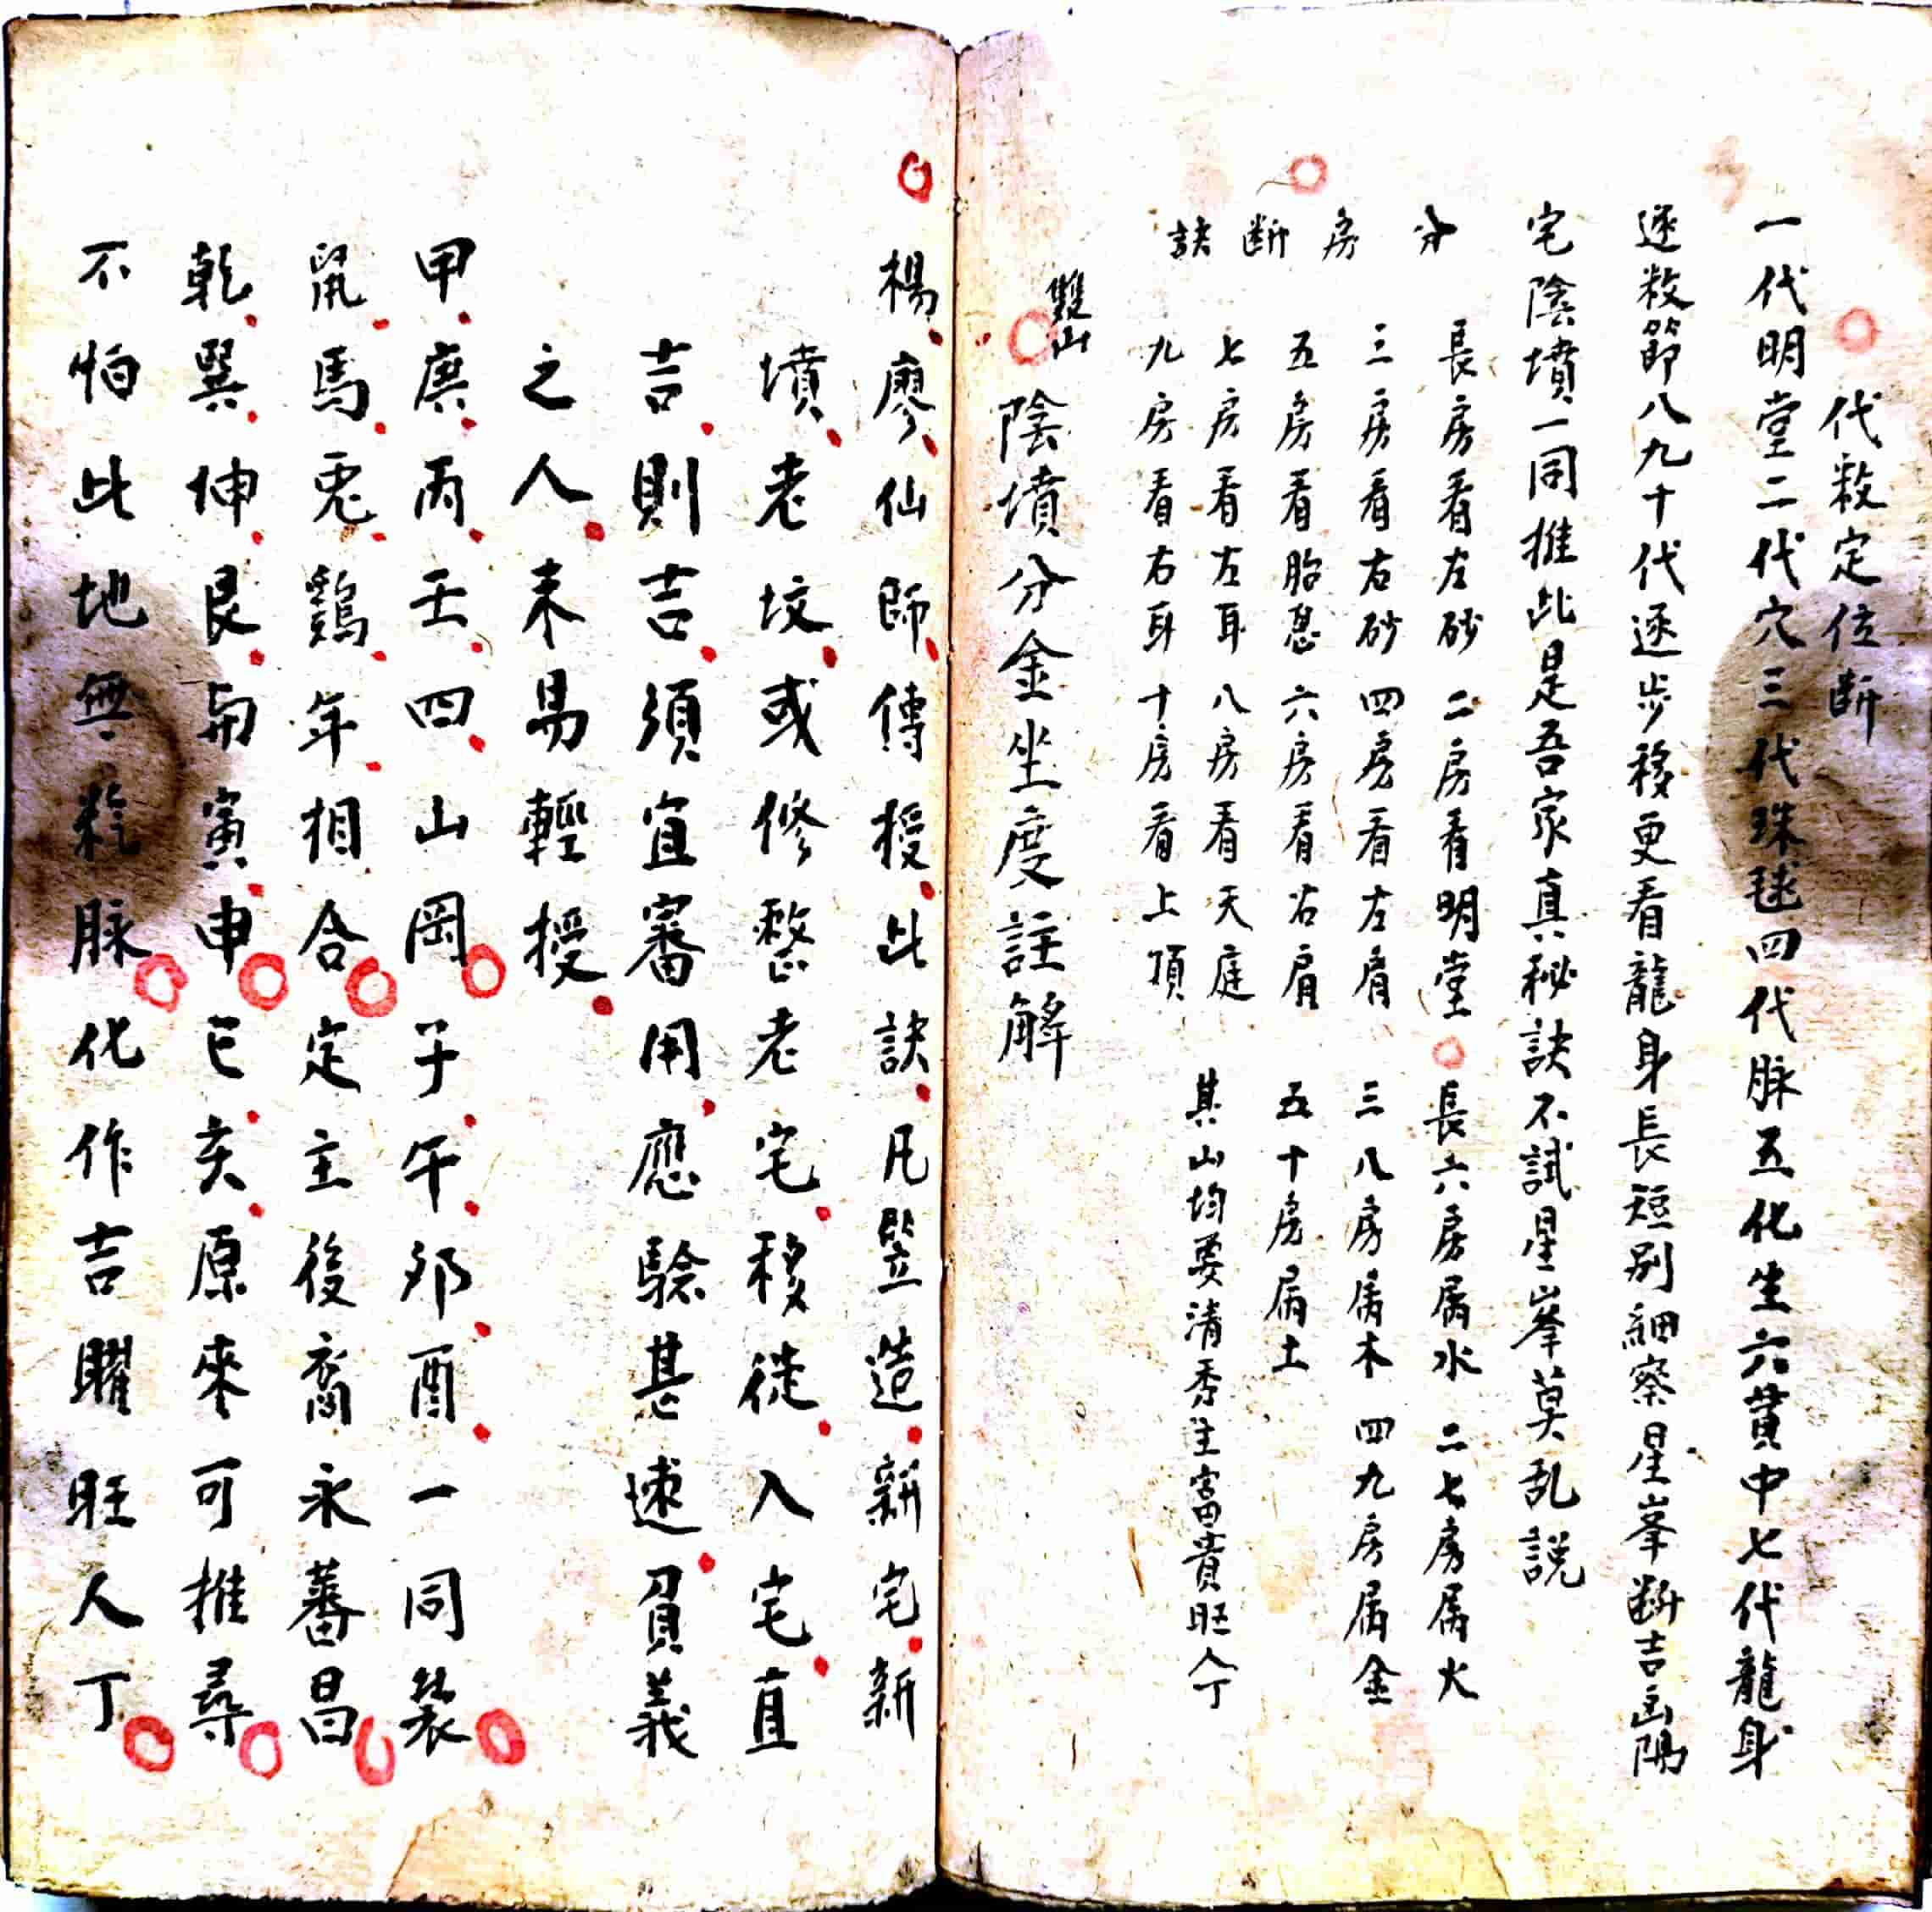 代数定位断
一代明堂二代穴三代珠毬四代脉五化生六貫中七代龍身
逐数節八九十代逐步移更看龍身長短別細察星峯断吉凶陽
宅陰墳一同推此是吾家真秘訣不試星峯莫乱説
分房断訣
長房看左砂 二房看明堂 長六房属水 二七房属火
三房看右砂 四房看左肩 三八房属木 四九房属金
五房看胎息 六房看右肩 五十房属土
七房看左耳 八房看天庭 其山均要清秀主富貴旺人丁
九房看右耳 十房看上頂
雙山
陰墳分金坐度註解
楊廖仙師傳授此訣凡竪造新宅新
墳老坟或修整老宅移徙入宅直
吉則吉須宜審用應驗甚速負義
之人未易輕授
甲庚丙壬四山岡子午夘酉一同裝
鼠馬兎鷄年相合定主後裔永蕃昌
乾巽伸艮與寅申巳亥原來可推尋
不怕此地無龍脉化作吉曜旺人丁